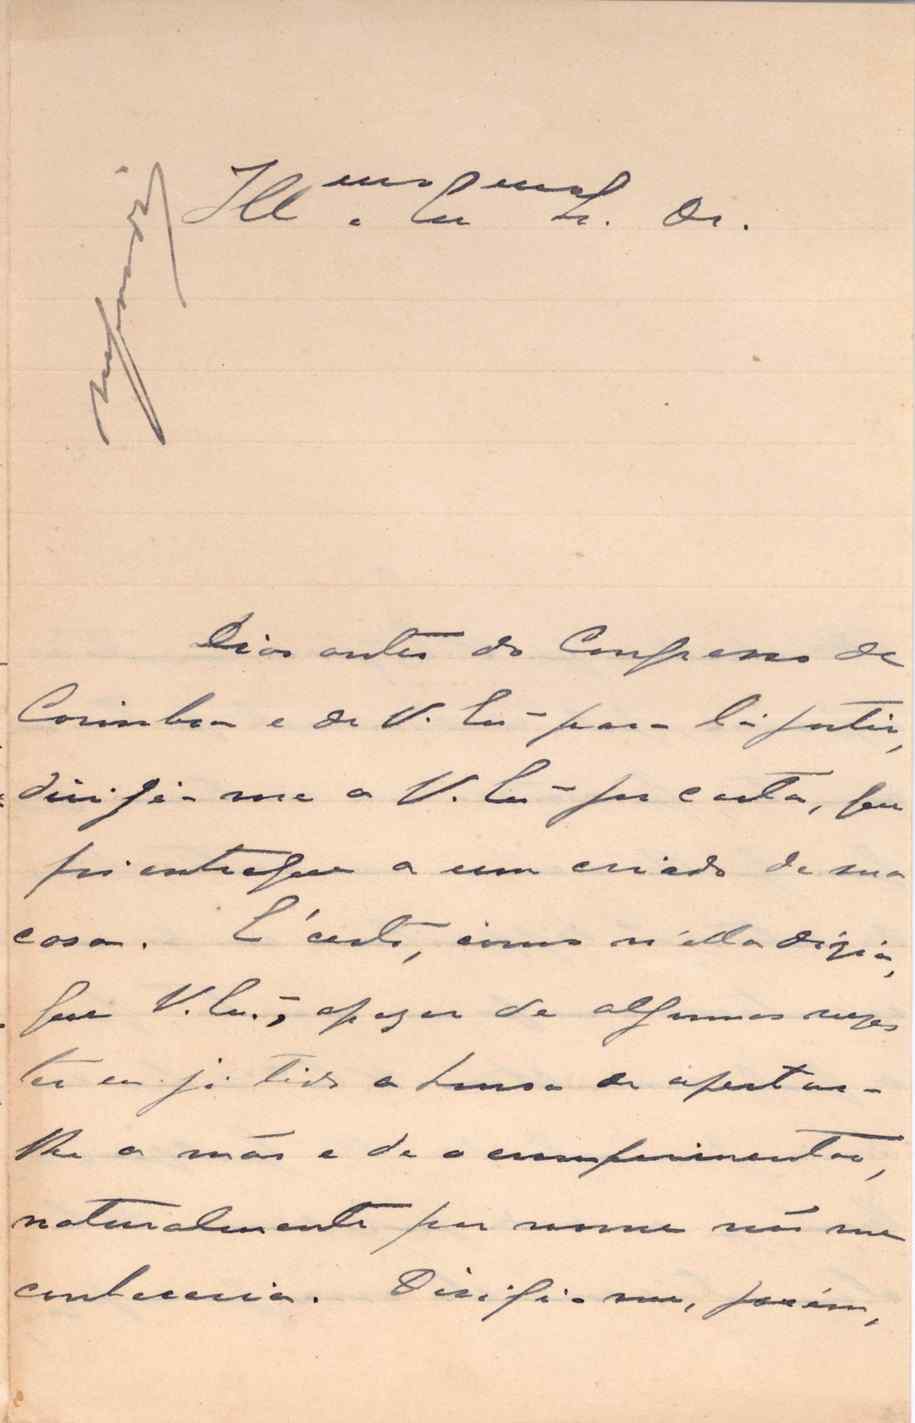 Ill.mo e Ex.mo Sr. Dr.
Respondi
Dias antes do Congresso de
Coimbra e de V. Ex.ª para lá partir,
dirigi-me a V. Ex.ª por carta, que
foi entregue a um criado de sua
casa. É certo, como n'ella dizia,
que V. Ex.ª, apezar de algumas vezes
ter eu já tido a honra de apertar-
lhe a mão e de o cumprimentar,
naturalmente por nome não me
conheceria. Dirigi-me, porém,